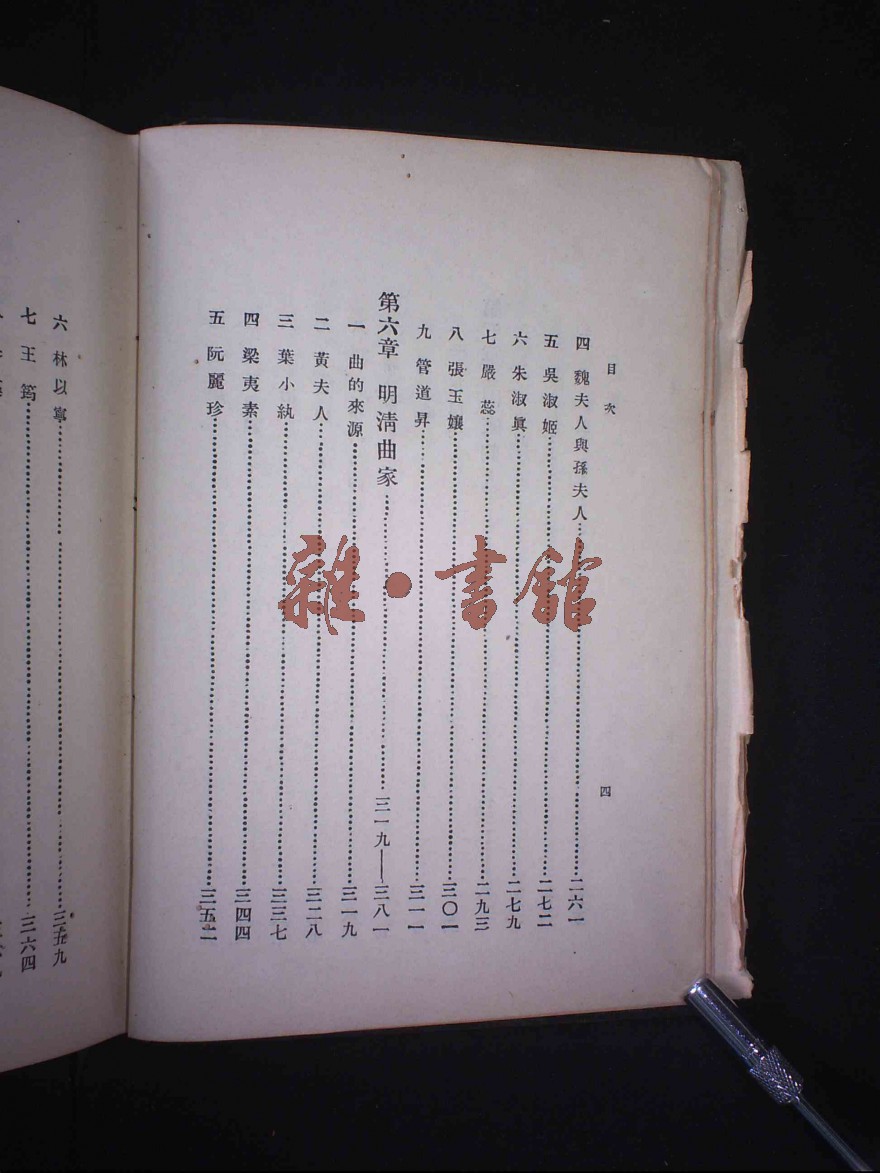 目次
四
四 魏夫人與孫夫人……二六一
五 吳淑姬……二七二
六 朱淑眞……二七九
七 嚴蕊……二九三
八 張玉孃……三〇一
九 管道昇……三一一
第六章 明淸曲家……三一九——三八一
一 曲的來源……三一九
二 黃夫人……三二八
三 葉小紈……三三七
四 梁夷素……三四四
五 阮麗珍……三五二
六 林以寧……三五九
七 王筠……三六四
雜·書館